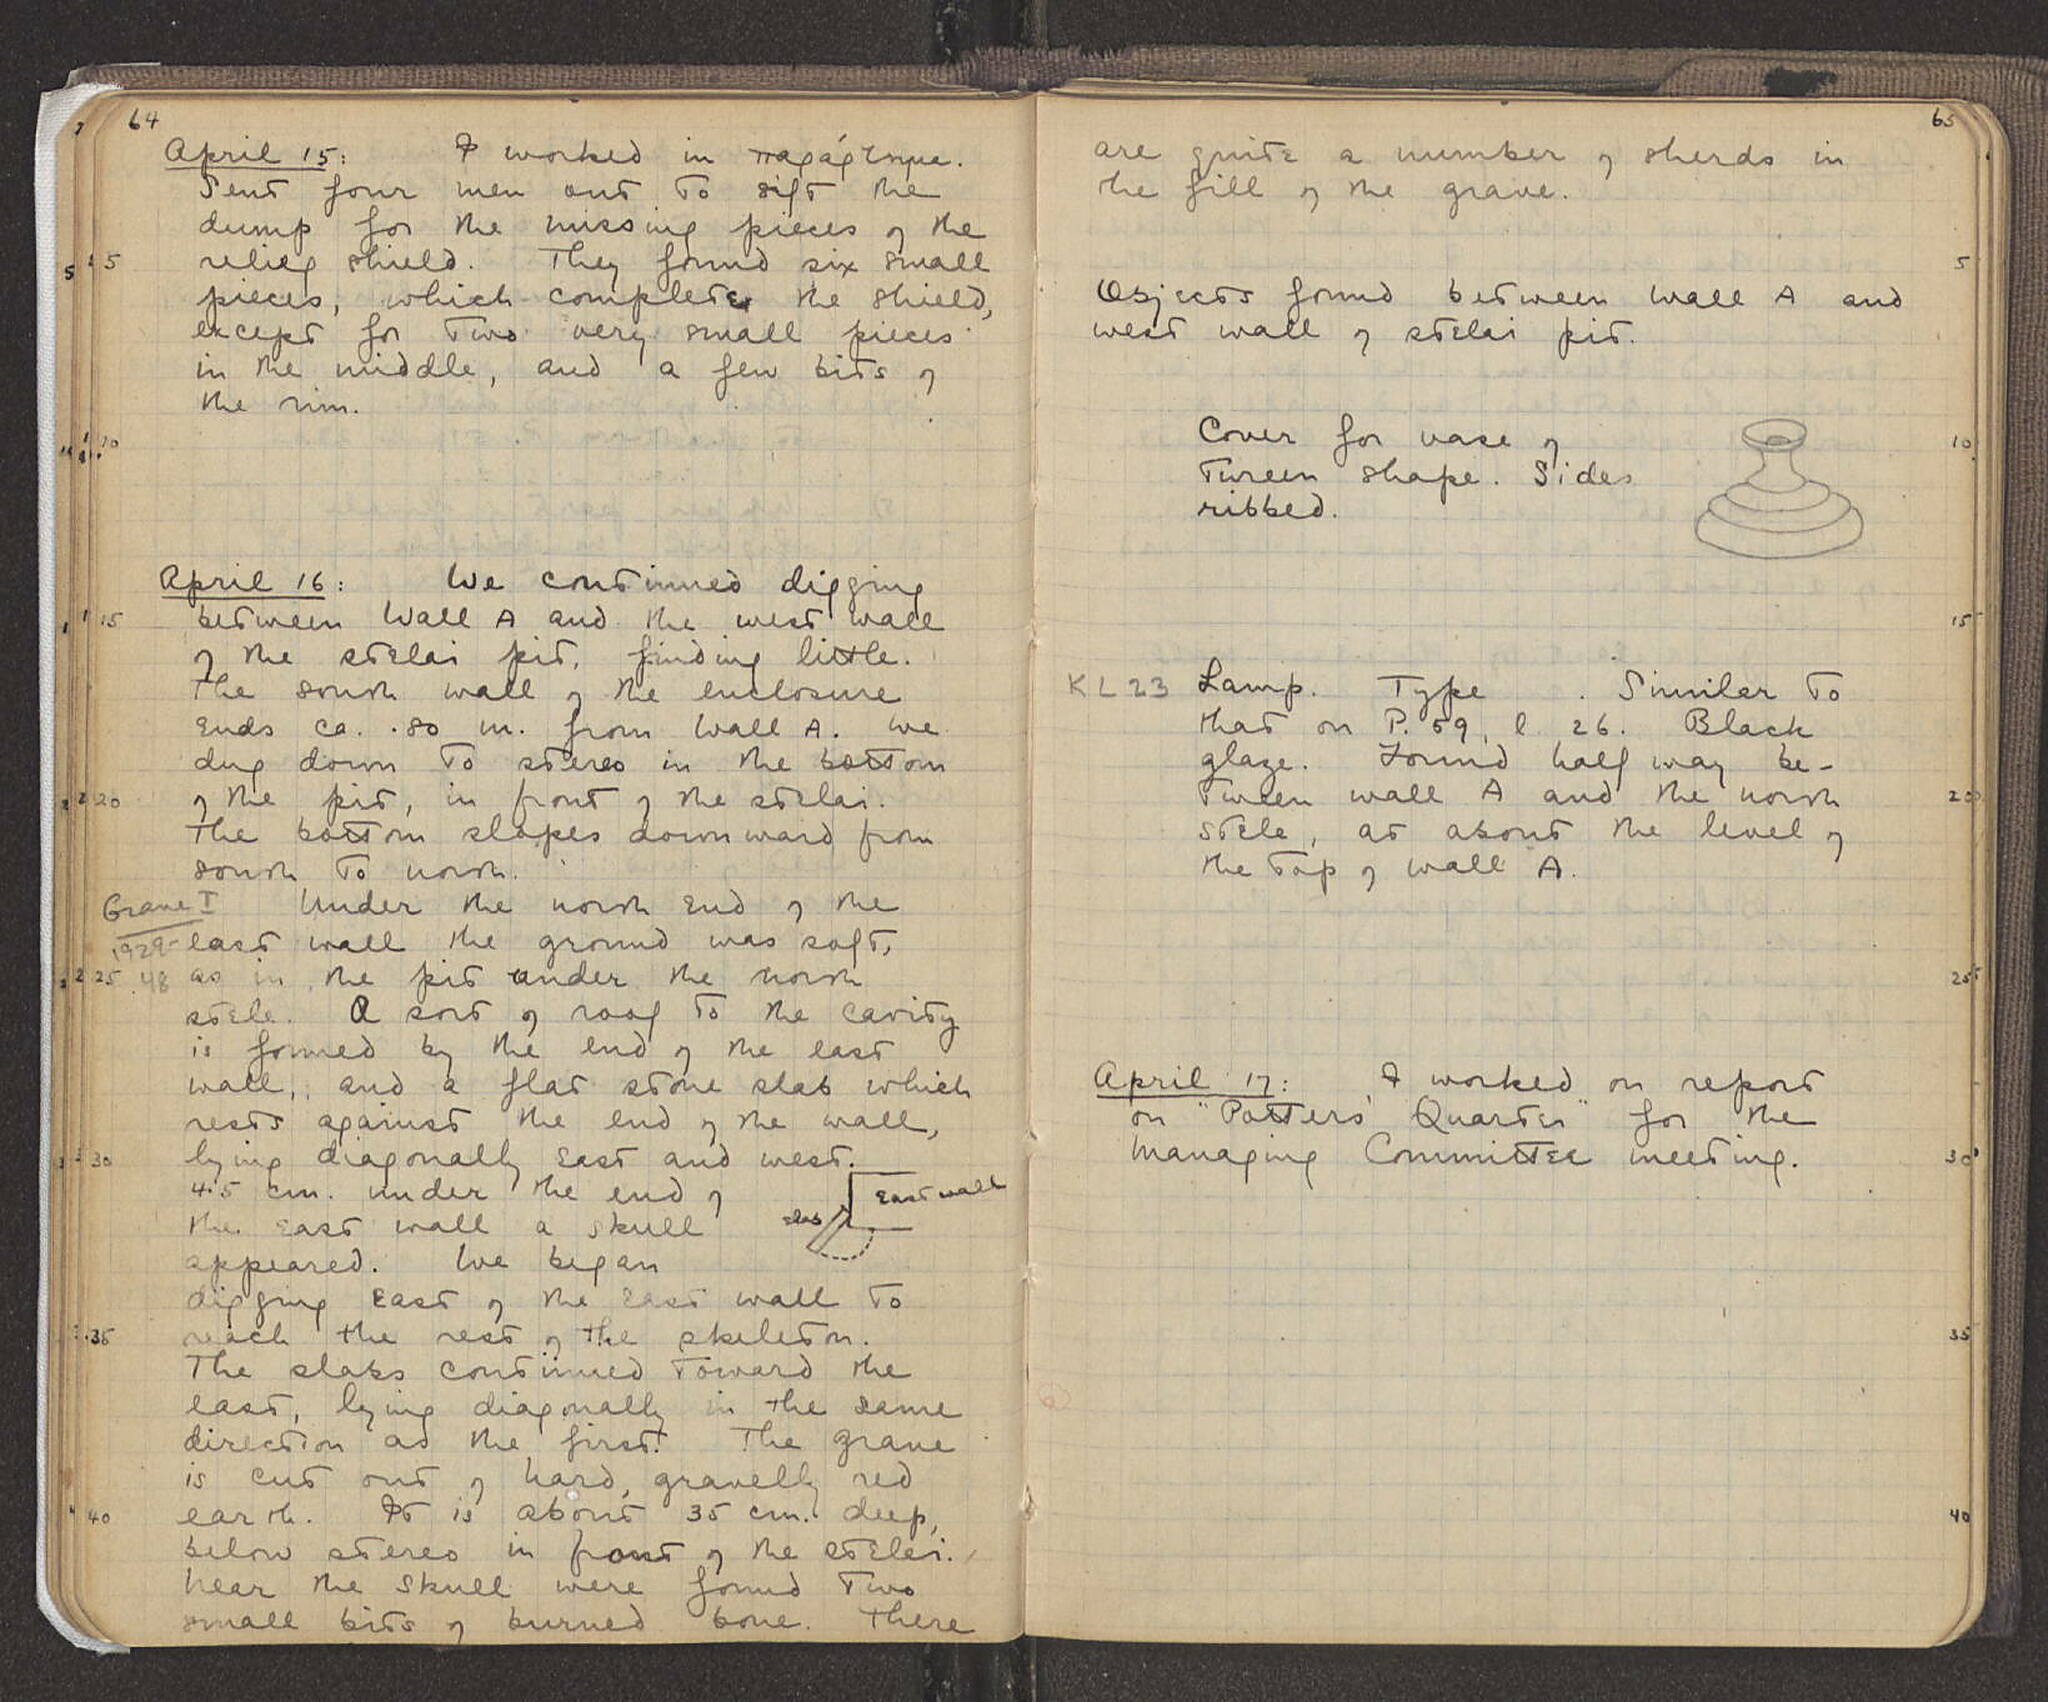 64
April 15: I worked in παράρτημα.
Sent four men out to sift the
dump for the missing pieces of the
relief shield. They found six small
pieces, which complete the shield,
except for two very small pieces
in the middle, and a few bits of
the rim.
April 16: We continued digging
between Wall A and the west wall
of the stelai pit, finding little.
The south wall of the enclosure
ends ca. .80 m. from Wall A. We
dug down to stereo in the bottom
of the pit, in front of the stelai.
The bottom slopes downward from
south to north.
Grave I Under the north end of the
1929- east wall the ground was soft,
48 as in the pit under the north
stele. A sort of roof to the cavity
is formed by the end of the east
wall, and a flat stone slab which
rests against the end of the wall,
lying diagonally east and west.
45 cm. under the end of
the east wall a skull
appeared. We began
East wall
slab
digging east of the east wall to
reach the rest of the skeleton.
The slabs continued toward the
east, lying diagonally in the same
direction as the first. The grave
is cut out of hard, gravelly red
earth. It is about 35 cm. deep,
below stereo in front of the stelai.
Near the skull were found two
small bits of burned bone. There
5
10
15
20
25
30
35
40
65
are quite a number of sherds in
the fill of the grave.
Objects found between wall A and
west wall of stelai pit.
Cover for vase of
tureen shape. Sides
ribbed.
KL23 Lamp. Type . Similar to
that on P. 59, l. 26. Black
glaze. Found half way be-
tween wall A and the north
stele, at about the level of
the top of wall A.
April 17: I worked on report
on "Potters' Quarter" for the
Managing Committee meeting.
5
10
15
20
25
30
35
40